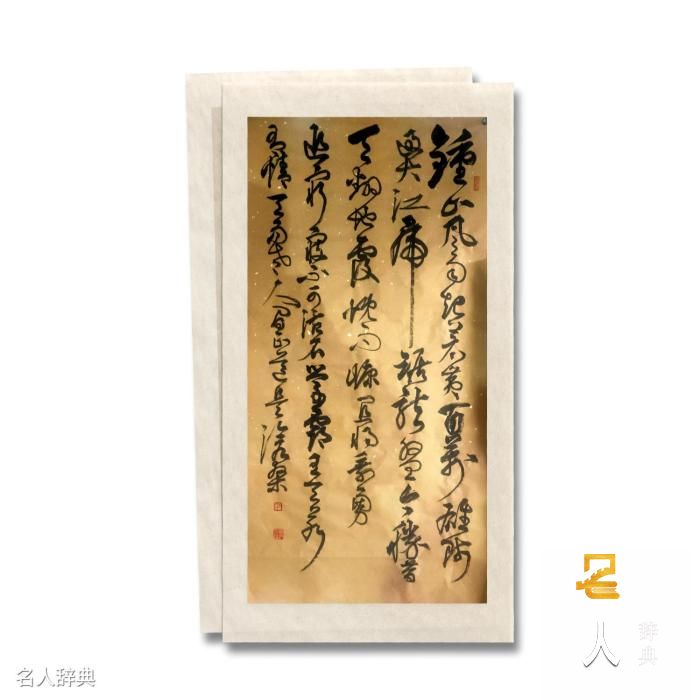 鍾山风雨起苍黄百万雄师
過大江虎踞龙盘今胜昔
天翻地覆慨而慷宜将剩勇
追穷寇不可沽名学霸王天若
有情天亦老人间正道是沧桑
名人辞典
名人辞典